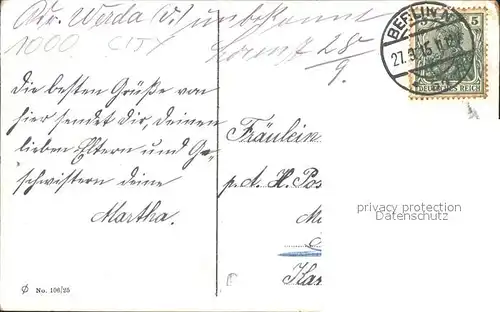 Werda (V.) unbekannt
1000 CITY
Lorenz 28/9.
BERLIN
27.9.15
5
DEUTSCHES REICH
Die besten Grüße von
hier sendet dir, deinen
lieben Eltern und Ge-
schwistern deine
Martha.
Fräulein
p. A. H. Pos
privacy protection
Datenschutz
No. 106/25